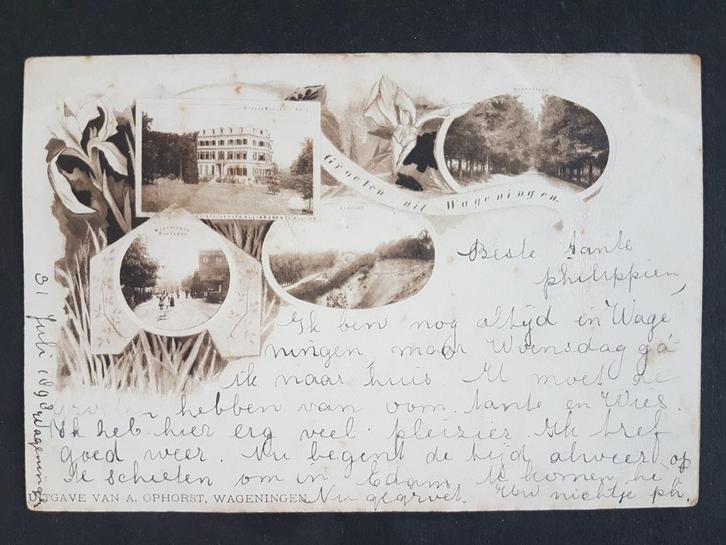 Groeten uit Wageningen.
Beste tante
philippien,
Ik ben nog altijd in Wage
ningen maar Woensdag ga
ik naar huis U moet de
groeten hebben van oom tante en Wies.
Ik heb hier erg veel pleizier Ik tref
goed weer. Nu begent de tijd alweer op
te schieten om in Edam te komen hé
Nu gegroet. Uw nichtje ph.
31 Juli 1898 Wageningen
UITGAVE VAN A. OPHORST, WAGENINGEN.